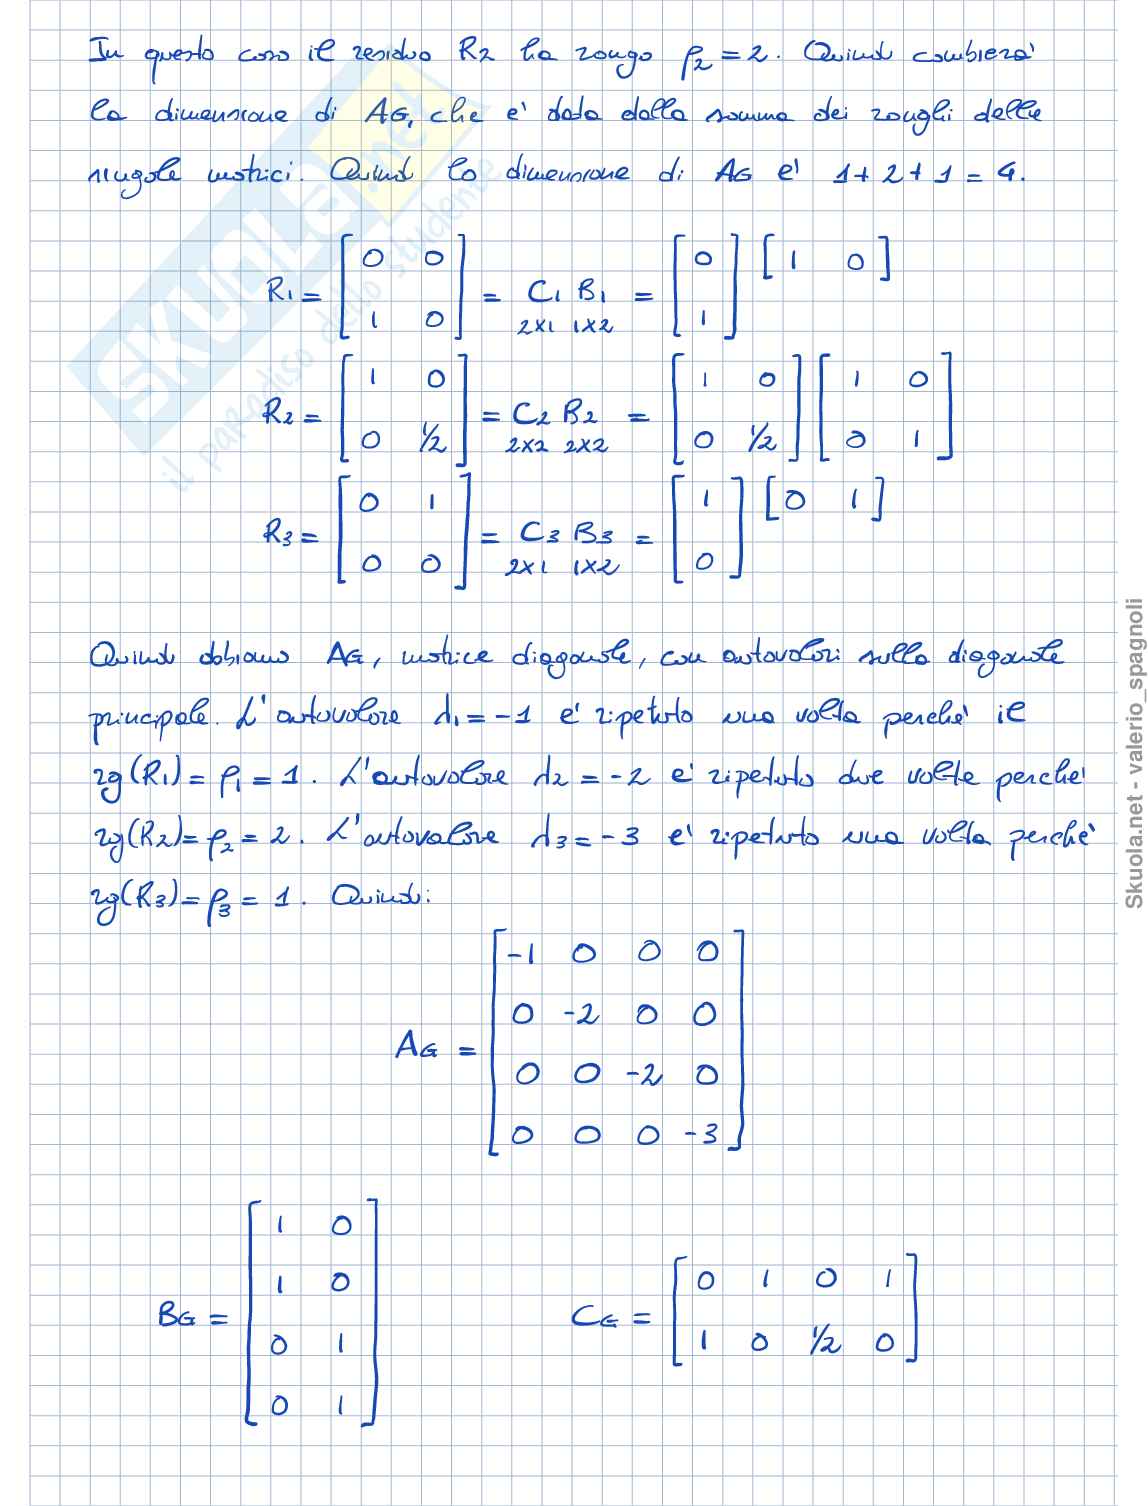 In questo caso il residuo R2 ha rango ρ2 = 2. Quindi cambierà
la dimensione di AG, che è data dalla somma dei ranghi delle
singole matrici. Quindi la dimensione di AG è 1 + 2 + 1 = 4.
R1 = [0 0; 1 0] = C1 B1 = [0; 1] [1 0]
2x1 1x2
R2 = [1 0; 0 1/2] = C2 B2 = [1 0; 0 1/2] [1 0; 0 1]
2x2 2x2
R3 = [0 1; 0 0] = C3 B3 = [1; 0] [0 1]
2x1 1x2
Quindi abbiamo AG, matrice diagonale, con autovalori sulla diagonale
principale. L'autovalore λ1 = -1 è ripetuto una volta perché il
rg(R1) = ρ1 = 1. L'autovalore λ2 = -2 è ripetuto due volte perché
rg(R2) = ρ2 = 2. L'autovalore λ3 = -3 è ripetuto una volta perché
rg(R3) = ρ3 = 1. Quindi:
AG =
-1 0 0 0
0 -2 0 0
0 0 -2 0
0 0 0 -3
BG =
1 0
1 0
0 1
0 1
CG =
0 1 0 1
1 0 1/2 0
SKUOLA.net
il paradiso dello studente
Skuola.net - valerio_spagnoli